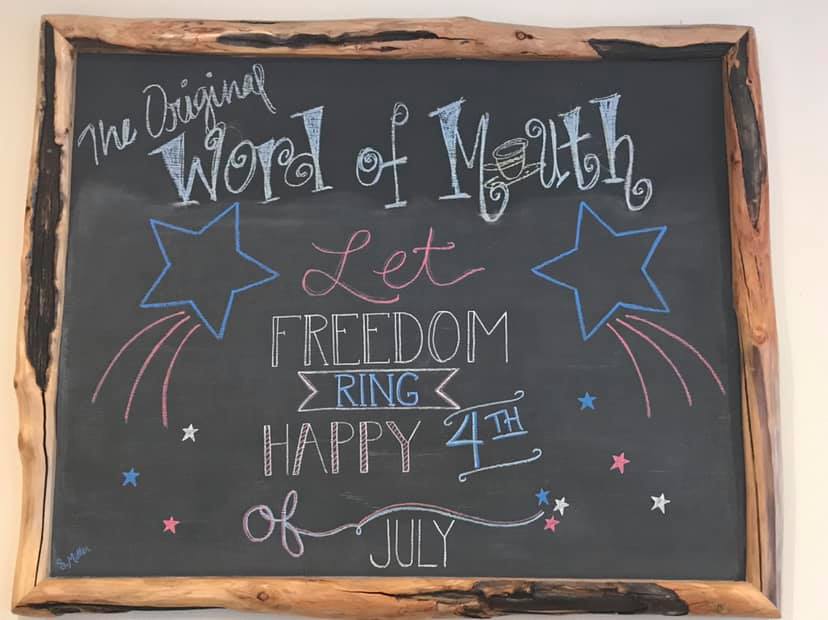 The Original
Word of Mouth
Let
FREEDOM
RING
HAPPY 4TH
of
JULY
S. Miller